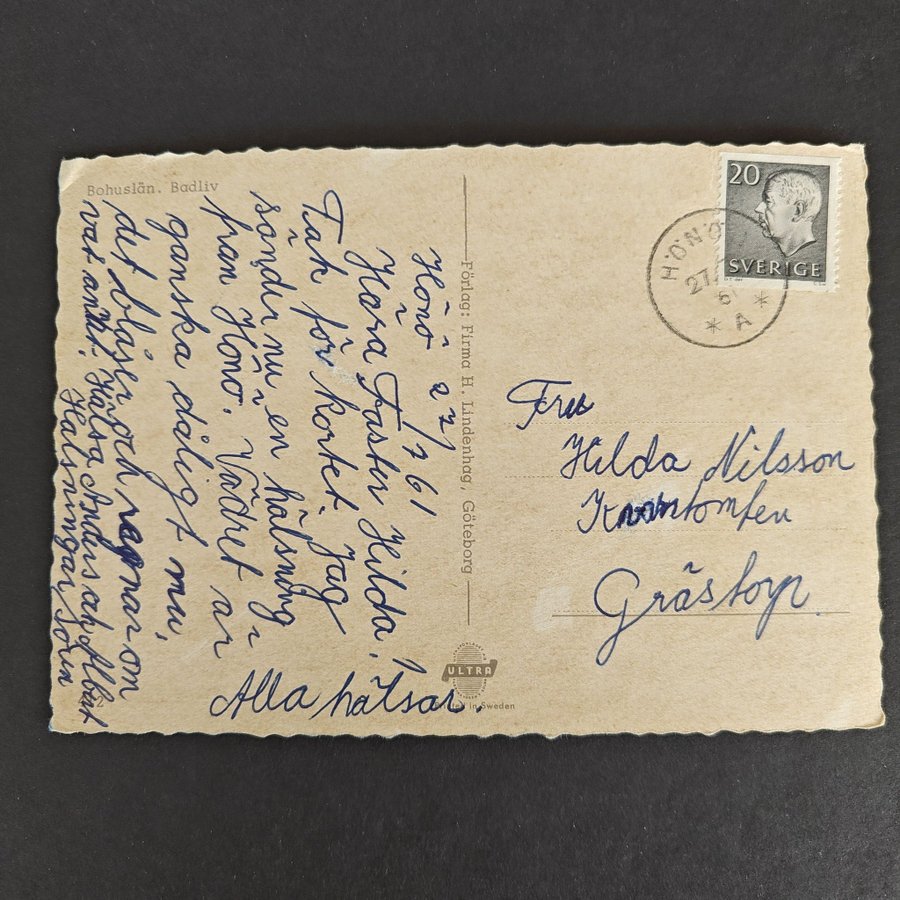 Bohuslän. Badliv
Hönö 27/7 61
Kära Faster Hilda!
Tack för kortet. Jag
sänder nu en hälsning
från Hönö. Vädret är
ganska dåligt nu,
det blåser och regnar om
vartannat. Hälsa Anders och Albert
Hälsningar
Alla hälsar.
Förlag: Firma H. Lindenhag, Göteborg
ULTRA
Printed in Sweden
20
SVERIGE
HÖNÖ
27
61
* A *
Fru
Hilda Nilsson
Grästorp.